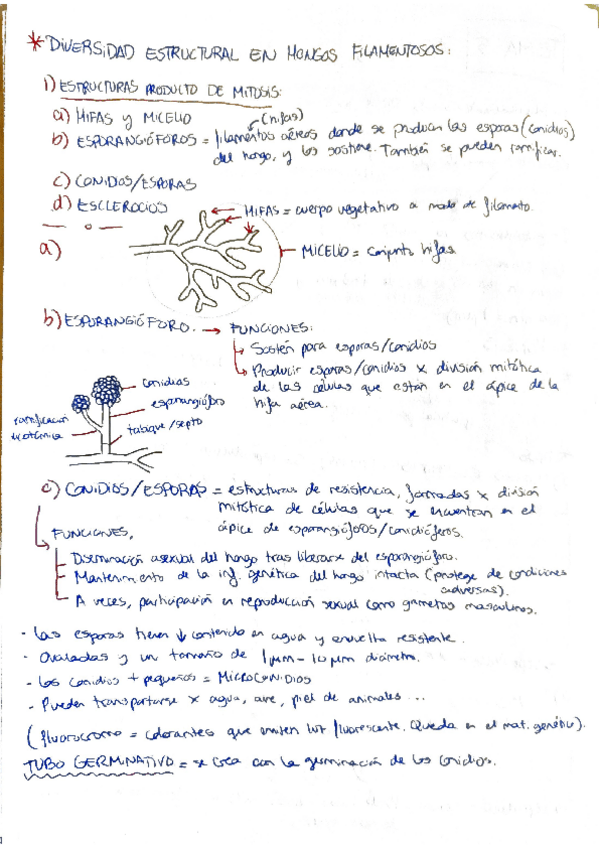 * DIVERSIDAD ESTRUCTURAL EN HONGOS FILAMENTOSOS:
1) ESTRUCTURAS PRODUCTO DE MITOSIS:
a) HIFAS Y MICELIO
(hifas)
b) ESPORANGIÓFOROS = filamentos aéreos donde se producen las esporas (conidios)
del hongo, y los sostiene. También se pueden ramificar.
c) CONIDIOS/ESPORAS
d) ESCLEROCIOS
HIFAS = cuerpo vegetativo a modo de filamento.
a)
MICELIO = conjunto hifas
b) ESPORANGIÓFORO. → FUNCIONES:
Sostén para esporas/conidios
Producir esporas/conidios x división mitótica
de las células que están en el ápice de la
hifa aérea.
conidios
esporangióforo
ramificación
dicotómica
tabique/septo
c) CONIDIOS/ESPORAS = estructuras de resistencia, formadas x división
mitótica de células que se encuentran en el
ápice de esporangióforos/conidióforos.
FUNCIONES,
Diseminación asexual del hongo tras liberarse del esporangióforo.
Mantenimiento de la inf. genética del hongo intacta (protege de condiciones
adversas).
A veces, participación en reproducción sexual como gametos masculinos.
- Las esporas tienen ↓ contenido en agua y envuelta resistente.
- Ovaladas y un tamaño de 1μm - 10μm diámetro.
- Los conidios + pequeños = MICROCONIDIOS
- Pueden transportarse x agua, aire, piel de animales ...
(fluorocromo = colorantes que emiten luz fluorescente. Queda en el mat. genético).
TUBO GERMINATIVO = se crea con la germinación de los conidios.